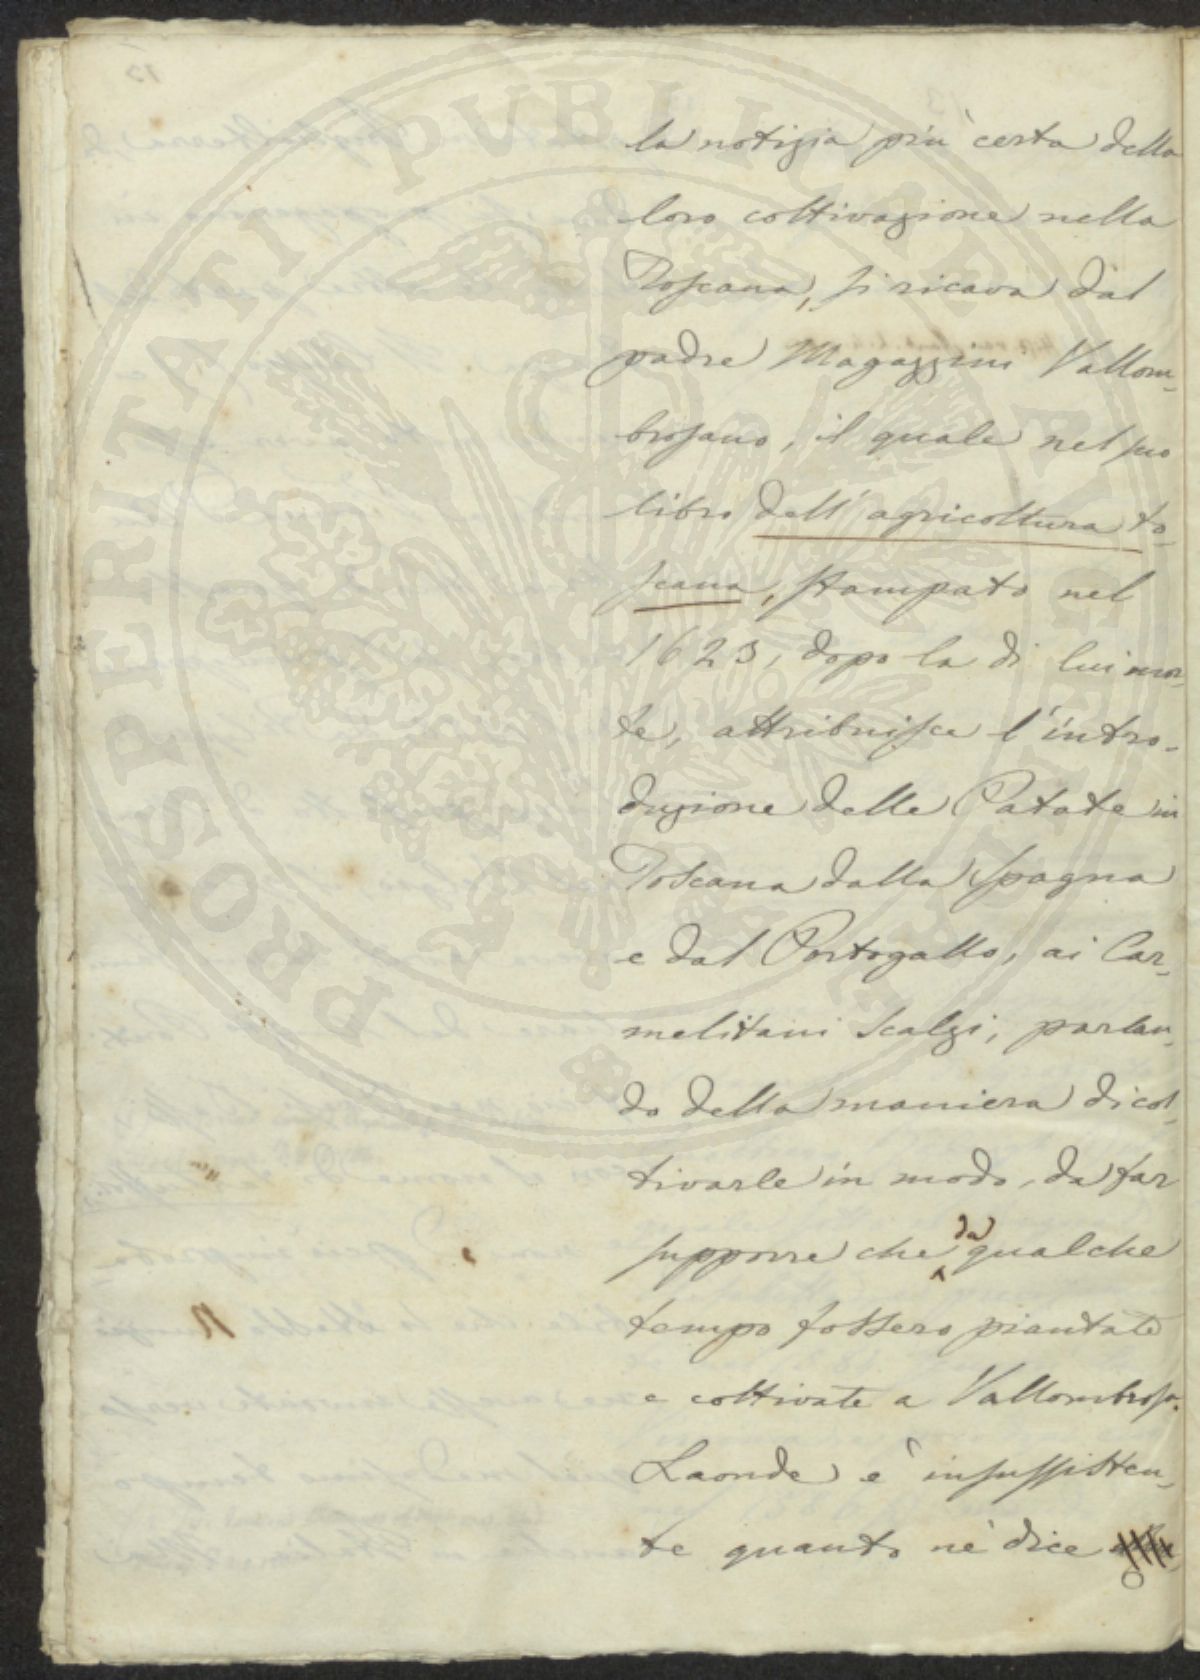 la notizia più certa della
loro coltivazione nella
Toscana, si ricava dal
padre Magazzini Vallom-
brosano, il quale nel suo
libro dell'agricoltura to-
scana, stampato nel
1623, dopo la di lui mor-
te, attribuisce l'intro-
duzione delle Patate in
Toscana dalla Spagna
e dal Portogallo, ai Car-
melitani Scalzi, parlan-
do della maniera di col-
tivarle in modo, da far
supporre che da qualche
tempo fossero piantate
e coltivate a Vallombrosa.
Laonde e' insussisten-
te quanto ne dice
PROSPERITATI PUBLICAE AUGENDAE